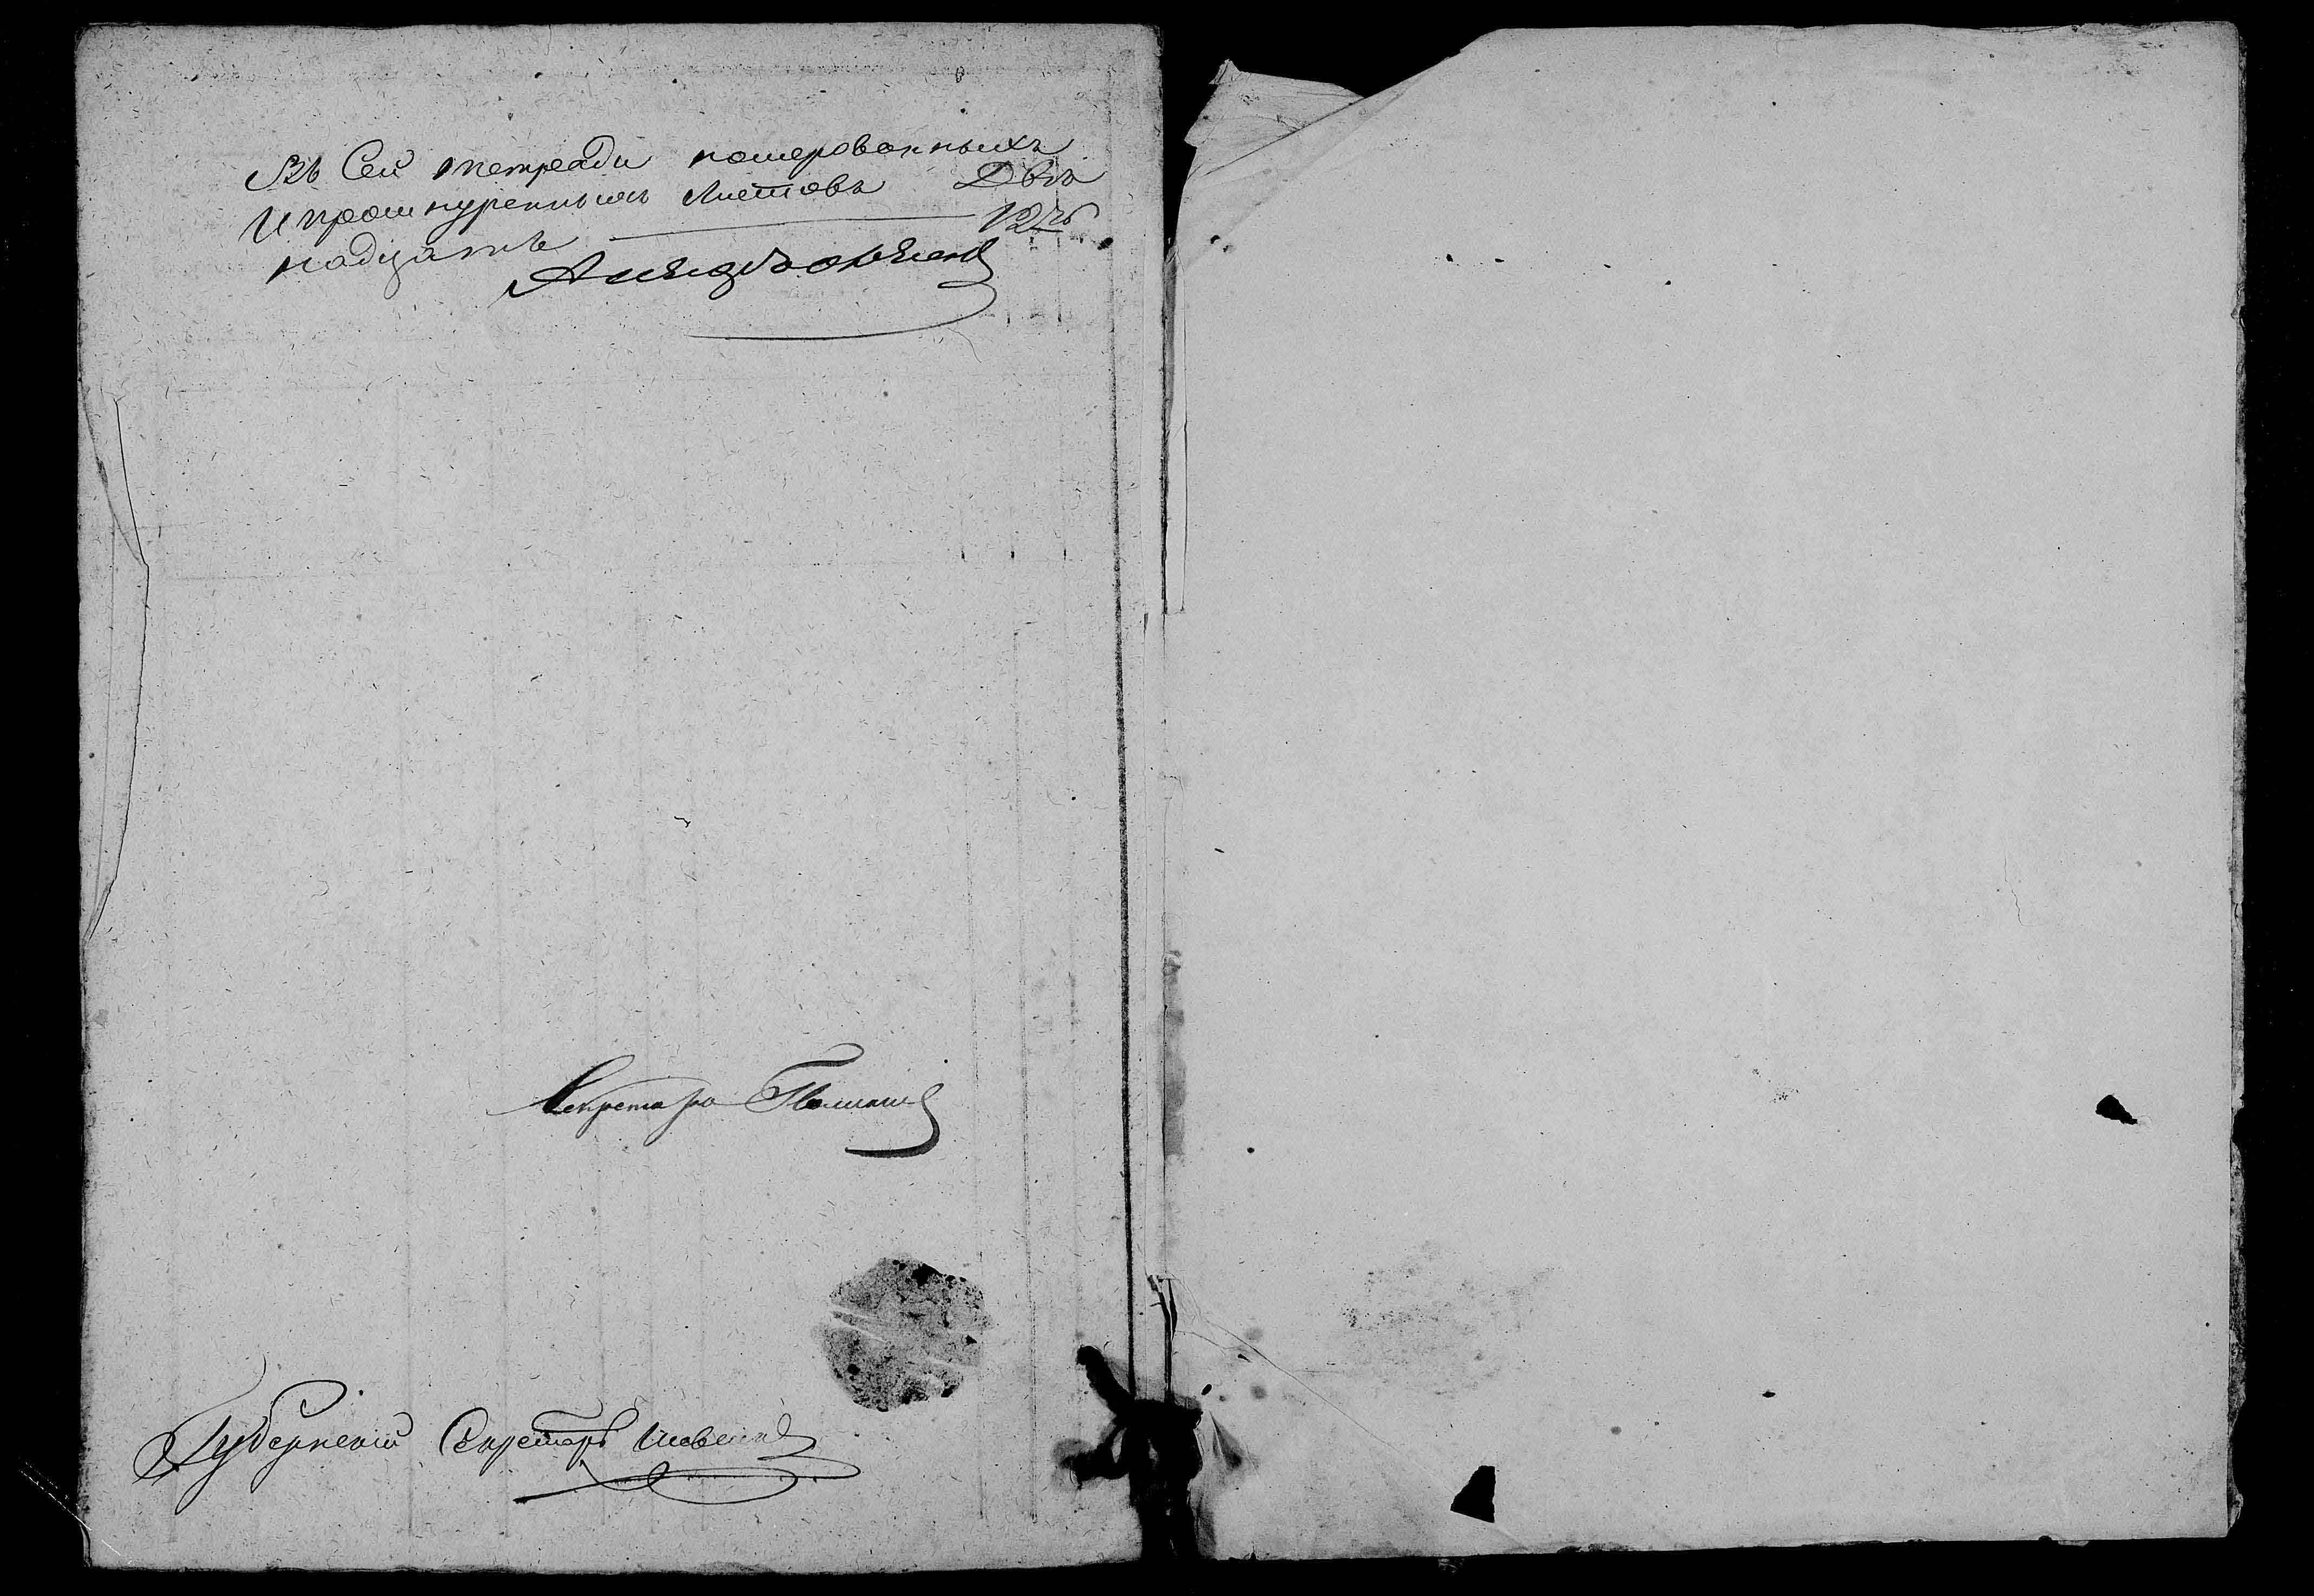 Въ Сей тетради номерованныхъ
И прошнуренныхъ листовъ Двѣ
надцать 12ть
Секретарь
Губернскій Секретарь